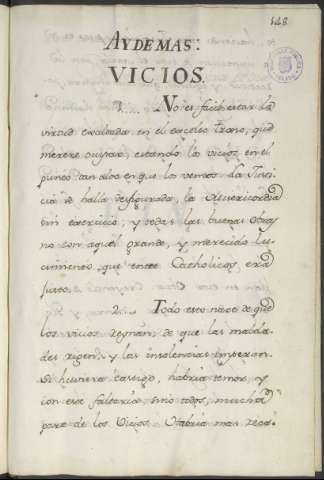 148
AYDEMAS.
VICIOS.
1.... No es facil estar la
virtud exaltada en el excelso Trono, que
merece ocupar, estando los vicios en el
punto tan alto en que los vemos. La Justi
cia se halla desfigurada, la Misericordia
sin exercicio, y todas las buenas obras
no son aquel grande, y merecido lu
cimiento, que entre Catholicos era
justo.
2.... Todo esto nace de que
los vicios Reynan; de que las malda
des rigen, y las insolencias imperan.
Si huviera castigo, habria temor, y
con este faltarian, sino todos, mucha
parte de los Vicios. Habria mas reca